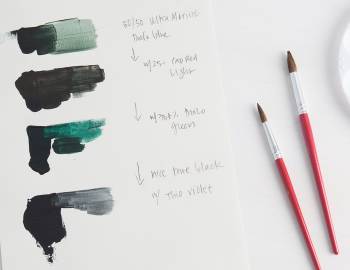 50/50 Ultra Marine
thalo blue
w/25% cad Red
Light
thalo
green
nice true black
w/ thio violet